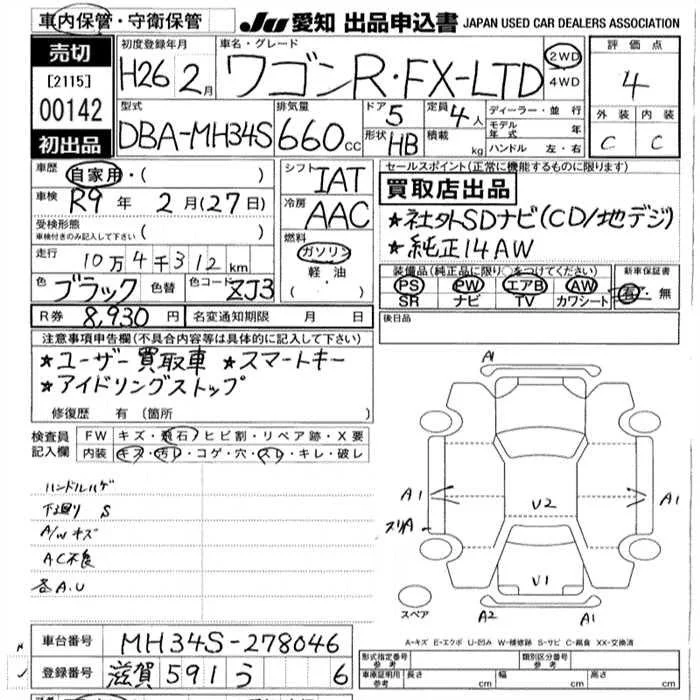 車内保管・守衛保管
JU 愛知 出品申込書 JAPAN USED CAR DEALERS ASSOCIATION
売切
[2115]
00142
初出品
初度登録年月
H26 2月
車名・グレード
ワゴンR・FX-LTD
2WD
4WD
評価点
4
外装 内装
C C
型式
DBA-MH34S
排気量
660cc
ドア 5
形状 HB
定員 4人
積載 kg
ディーラー・並行
モデル年式 年
ハンドル 左・右
車歴 自家用・( )
車検 R9年 2月(27日)
受検形態
車検付きのみ記入して下さい ( )
走行 10万4千312km
色 ブラック 色替 色コード ZJ3
シフト IAT
冷房 AAC
燃料
ガソリン
軽油
( ・ )
セールスポイント(正常に機能するものに限ります)
買取店出品
★社外SDナビ(CD/地デジ)
★純正14AW
装備品(純正品に限り○をつけてください)
PS PW エアB AW
SR ナビ TV カワシート
新車保証書
有・無
R券 8,930円 名変通知期限 月 日
後日品
注意事項申告欄(不具合内容等は具体的に記入して下さい)
★ユーザー買取車 ★スマートキー
★アイドリングストップ
修復歴 有(箇所 )
検査員
記入欄
FW キズ・飛石・ヒビ割・リペア跡・X要
内装 キズ・汚レ・コゲ・穴・スレ・キレ・破レ
ハンドルハゲ
下廻り S
A/Wキズ
AC不良
各A.U
A1
A1
スリA
V2
A1
V1
A2
A1
スペア
A-キズ E-エクボ U-凹み W-補修跡 S-サビ C-腐食 XX-交換済
車台番号 MH34S-278046
登録番号 滋賀 591 う 6
形式指定番号
参考
類別区分番号
参考
車庫証明用
参考
長さ cm 幅 cm 高さ cm